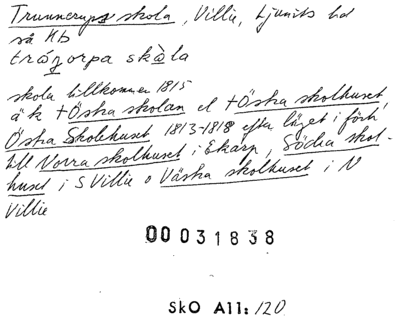 Trunnerups skola, Villie, Ljunits hd
så Hb
trágorpa skàla
skola tillkommen 1815
ä k †Östra skolan el †Östra skolhuset
Östra Skolehuset 1813-1818 efter läget i förh
till Norra skolhuset i Ekarp, Södra skol-
huset i S Villie o Västra skolhuset i N
Villie
00031838
SkO A11: 120